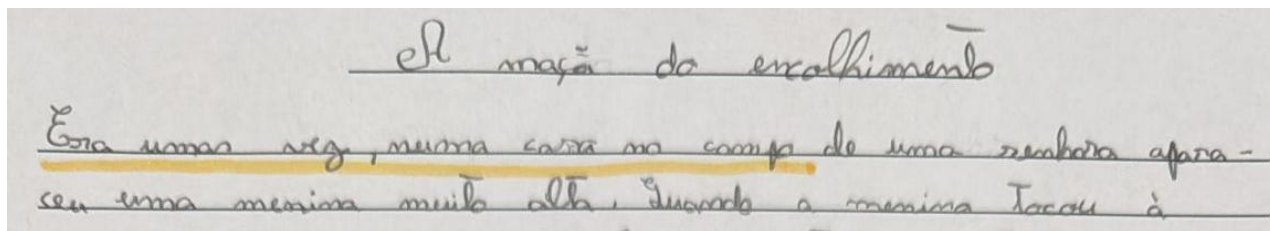 A maçã do encolhimento
Era uman vez, numa casa no campo de uma senhora apara-
seu uma menina muito alta. Quando a menina Tocou à